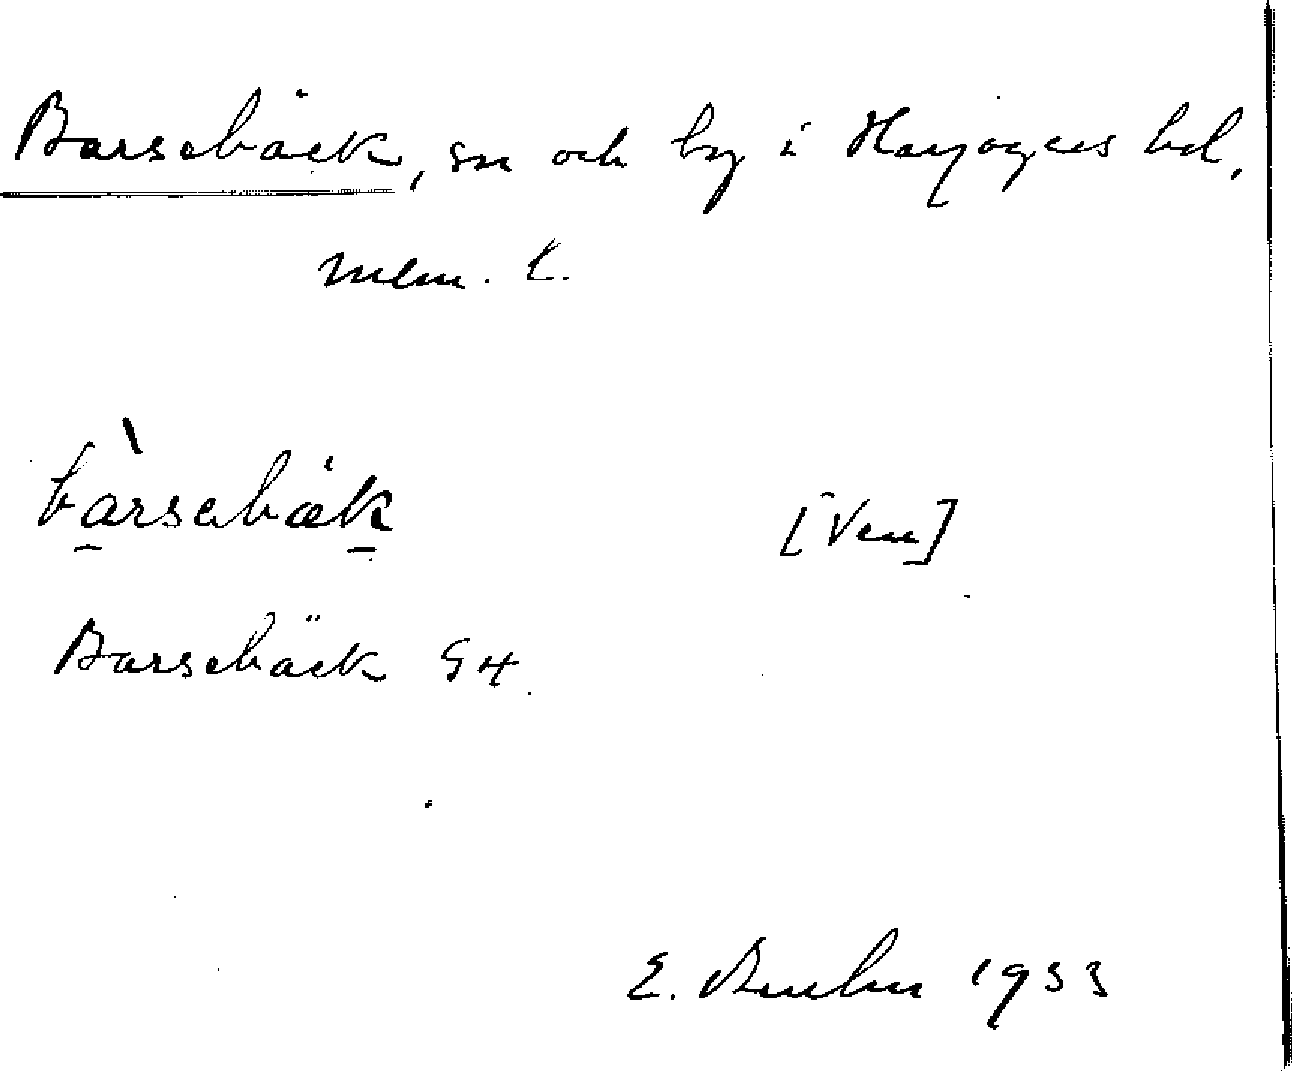 Barsebäck, sn och by i Harjagers hd,
Mlm. l.
bàrsəbæk [Ven]
Barsebäck GK
E. 1933